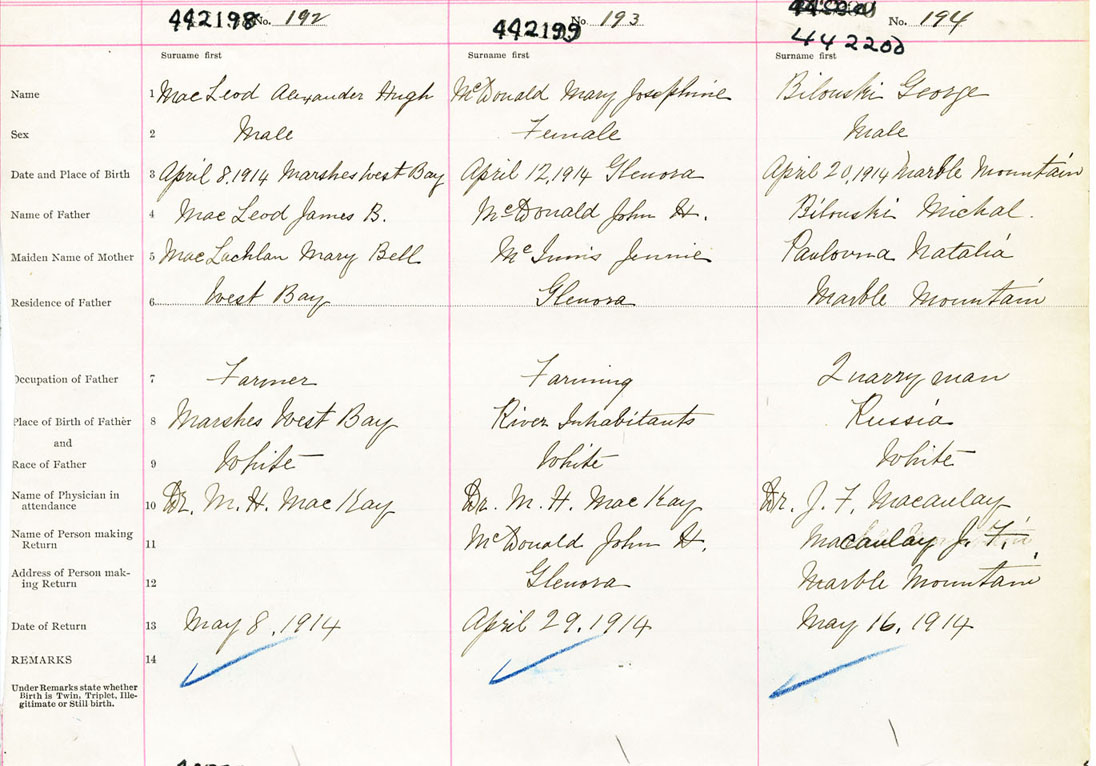 442198 No. 192
442199 No 193
No. 194
442200
Surname first
Surname first
Surname first
Name 1 MacLeod Alexander Hugh McDonald Mary Josephine Bilouski George
Sex 2 Male Female Male
Date and Place of Birth 3 April 8, 1914 Marshes West Bay April 12, 1914 Glenora April 20, 1914 Marble Mountain
Name of Father 4 MacLeod James B. McDonald John H. Bilouski Michal.
Maiden Name of Mother 5 MacLachlan Mary Bell McInnis Jennie Pavlovna Natalia
Residence of Father 6 West Bay Glenora Marble Mountain
Occupation of Father 7 Farmer Farming Quarry man
Place of Birth of Father 8 Marshes West Bay River Inhabitants Russia
and
Race of Father 9 White White White
Name of Physician in
attendance 10 Dr. M. H. MacKay Dr. M. H. MacKay Dr. J. F. Macaulay
Name of Person making
Return 11 McDonald John H. Macaulay J. F.
Address of Person mak-
ing Return 12 Glenora Marble Mountain
Date of Return 13 May 8, 1914 April 29, 1914 May 16, 1914
REMARKS 14
Under Remarks state whether
Birth is Twin, Triplet, Ille-
gitimate or Still birth.